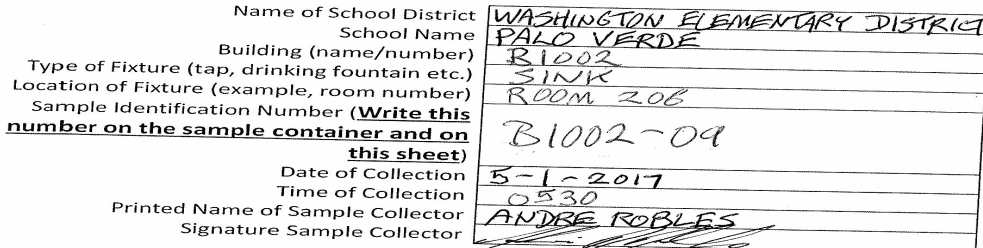 Name of School District WASHINGTON ELEMENTARY DISTRICT
School Name PALO VERDE
Building (name/number) B1002
Type of Fixture (tap, drinking fountain etc.) SINK
Location of Fixture (example, room number) ROOM 206
Sample Identification Number (Write this
number on the sample container and on B1002-09
this sheet)
Date of Collection 5-1-2017
Time of Collection 0530
Printed Name of Sample Collector ANDRE ROBLES
Signature Sample Collector